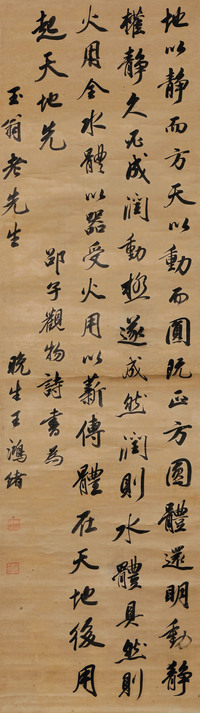 地以静而方天以動而圓既正方圓體還明動静
權静久必成潤動極遂成然潤則水體具然則
火用全水體以器受火用以薪傳體在天地後用
起天地先 邵子觀物詩書為
玉翁老先生 晚生王鴻緒